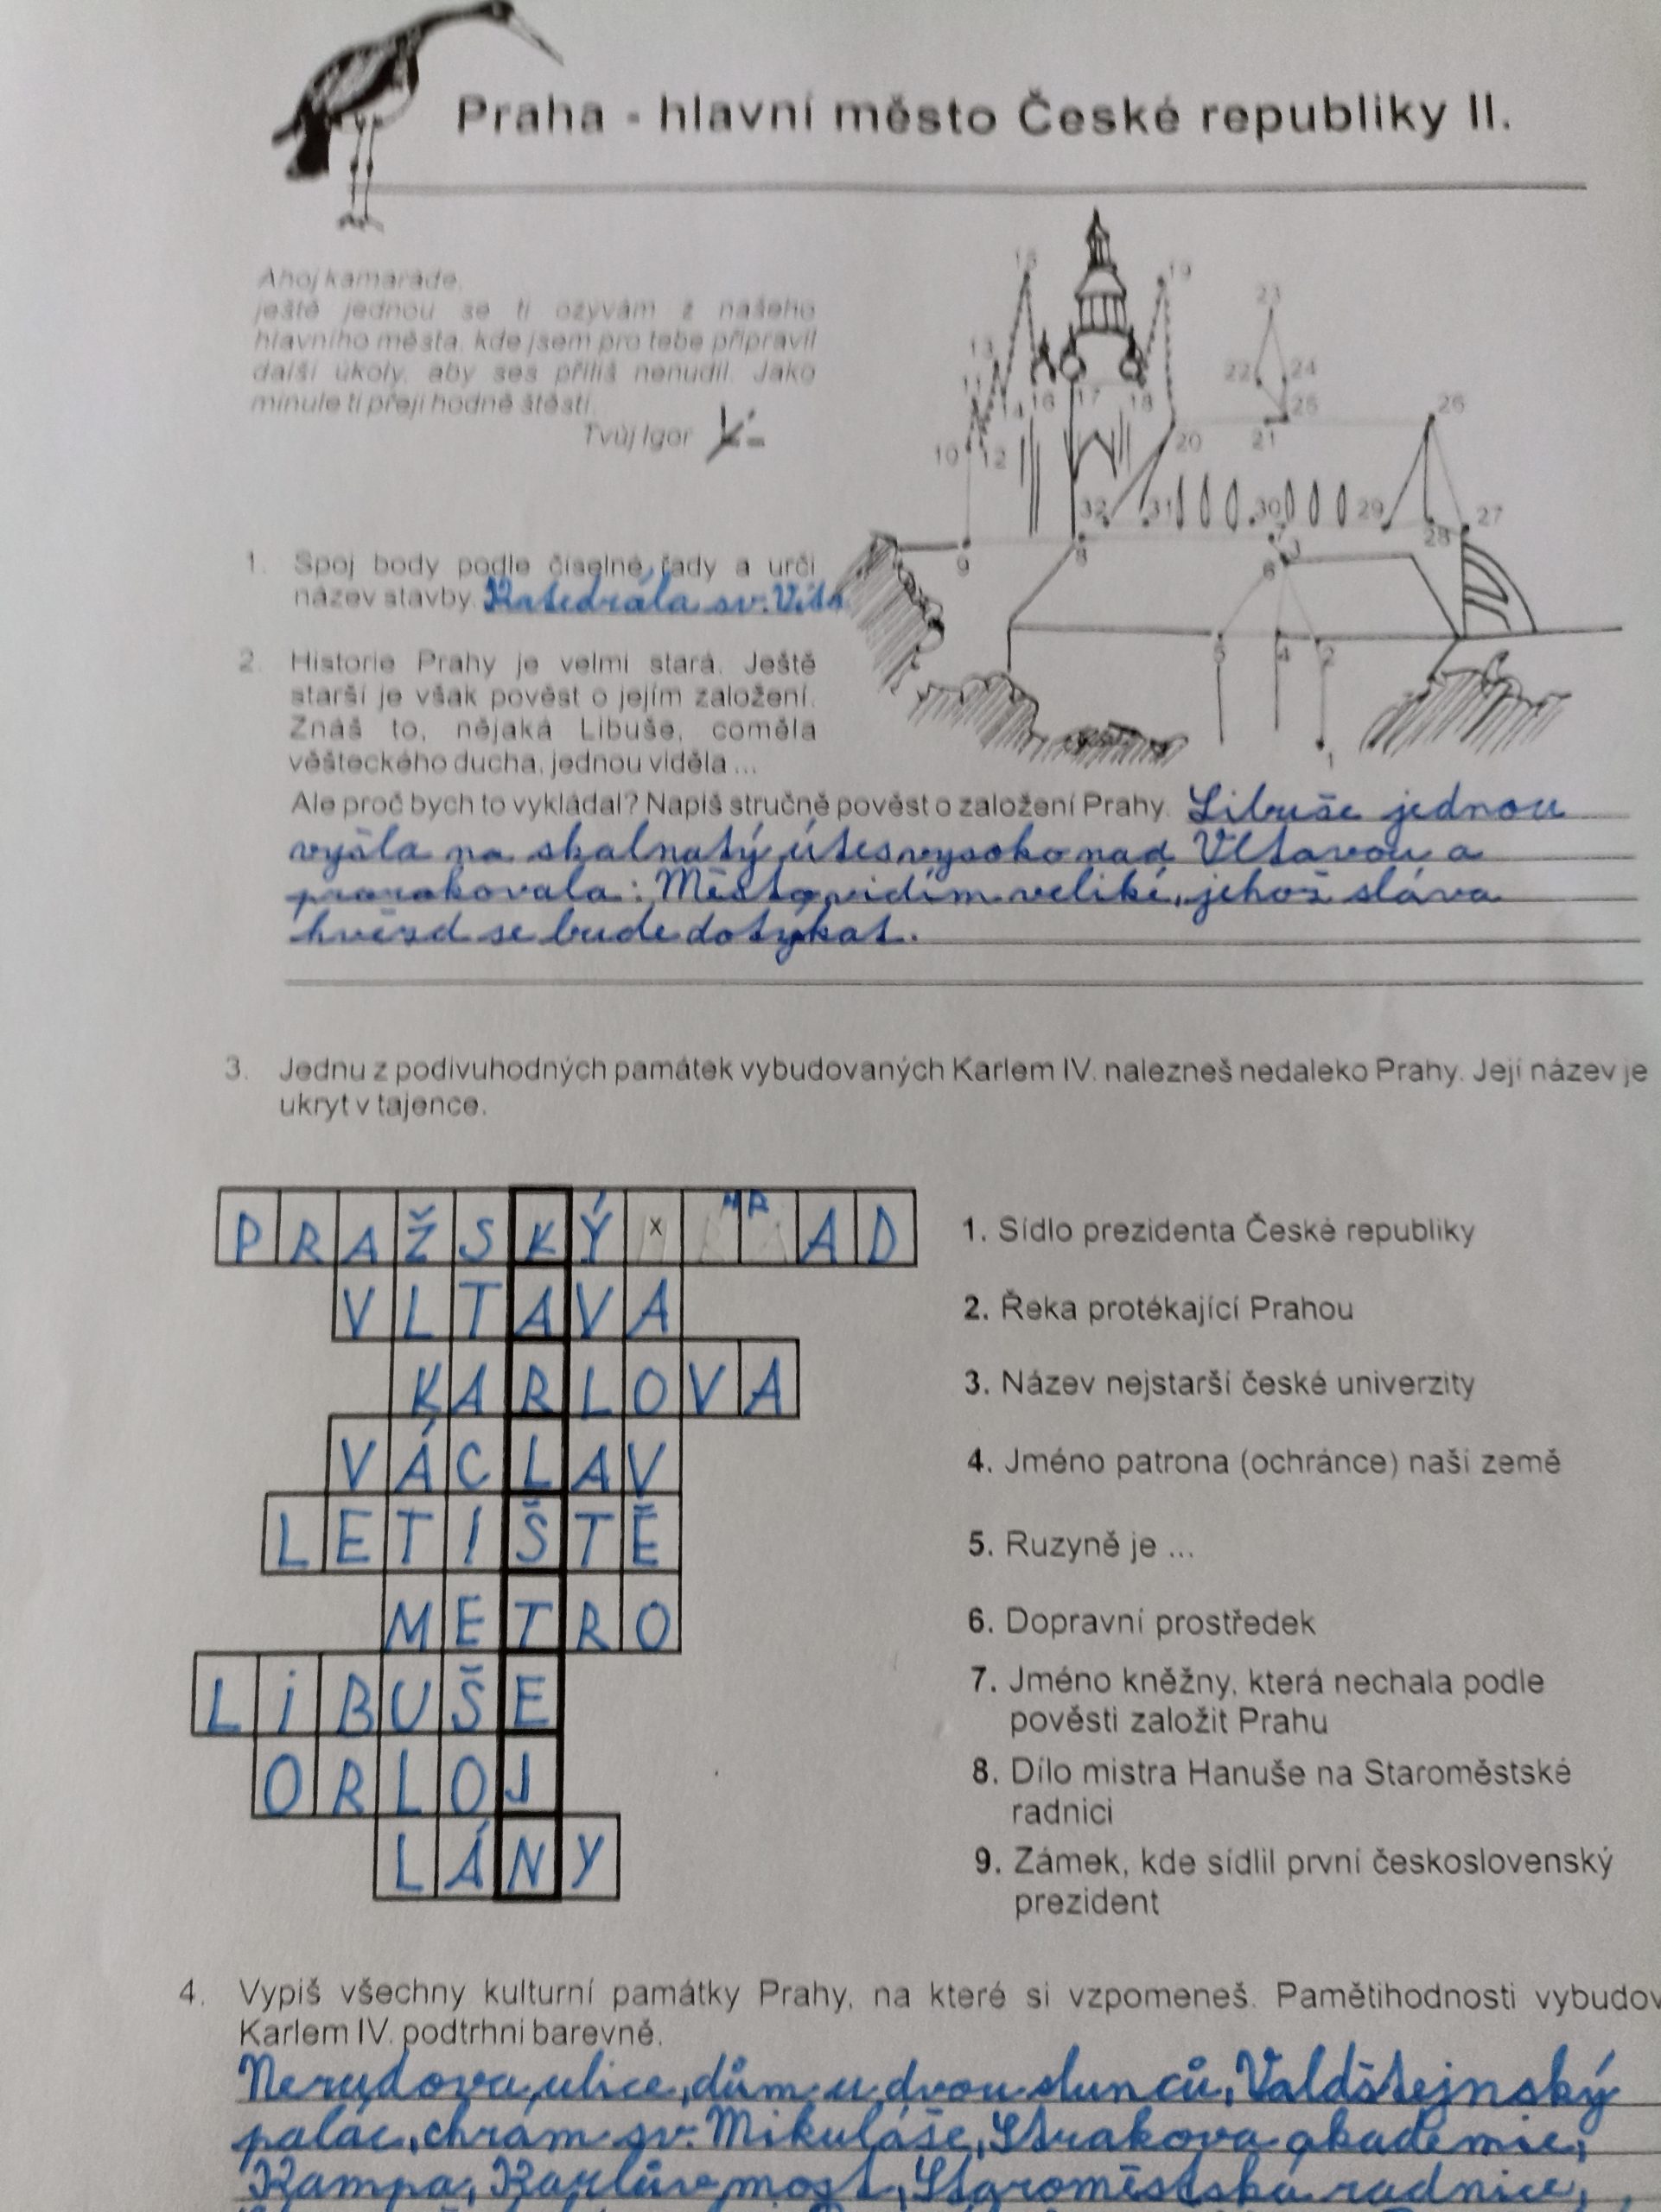 Praha - hlavní město České republiky II.
Ahoj kamaráde,
ještě jednou se ti ozývám z našeho
hlavního města, kde jsem pro tebe připravil
další úkoly, aby ses příliš nenudil. Jako
minule ti přeji hodně štěstí.
Tvůj Igor
15
19
23
13
11
22
24
14
16
17
18
25
26
10
12
20
21
32
31
30
29
28
27
9
8
7
6
3
5
4
2
1
1. Spoj body podle číselné řady a urči
název stavby. Katedrála sv. Víta
2. Historie Prahy je velmi stará. Ještě
starší je však pověst o jejím založení.
Znáš to, nějaká Libuše, coměla
věšteckého ducha, jednou viděla ...
Ale proč bych to vykládal? Napiš stručně pověst o založení Prahy. Libuše jednou
vyšla na skalnatý útes vysoko nad Vltavou a
prorokovala: Město vidím veliké, jehož sláva
hvězd se bude dotýkat.
3. Jednu z podivuhodných památek vybudovaných Karlem IV. nalezneš nedaleko Prahy. Její název je
ukryt v tajence.
PRAŽSKÝ X HRAD
VLTAVA
KARLOVA
VÁCLAV
LETIŠTĚ
METRO
LIBUŠE
ORLOJ
LÁNY
1. Sídlo prezidenta České republiky
2. Řeka protékající Prahou
3. Název nejstarší české univerzity
4. Jméno patrona (ochránce) naší země
5. Ruzyně je ...
6. Dopravní prostředek
7. Jméno kněžny, která nechala podle
pověsti založit Prahu
8. Dílo mistra Hanuše na Staroměstské
radnici
9. Zámek, kde sídlil první československý
prezident
4. Vypiš všechny kulturní památky Prahy, na které si vzpomeneš. Pamětihodnosti vybudov
Karlem IV. podtrhni barevně.
Nerudova ulice, dům u dvou slunců, Valdštejnský
palác, chrám sv. Mikuláše, Strakova akademie,
Kampa, Karlův most, Staroměstská radnice,